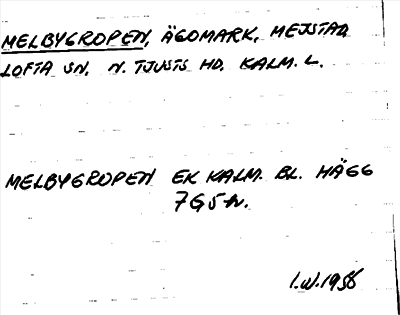 MELBYGROPEN, ÄGOMARK, MEJSTAD
LOFTA SN. N. TJUSTS HD. KALM. L.
MELBYGROPEN EK KALM. BL. HÄGG
7G5h.
I.W. 1956